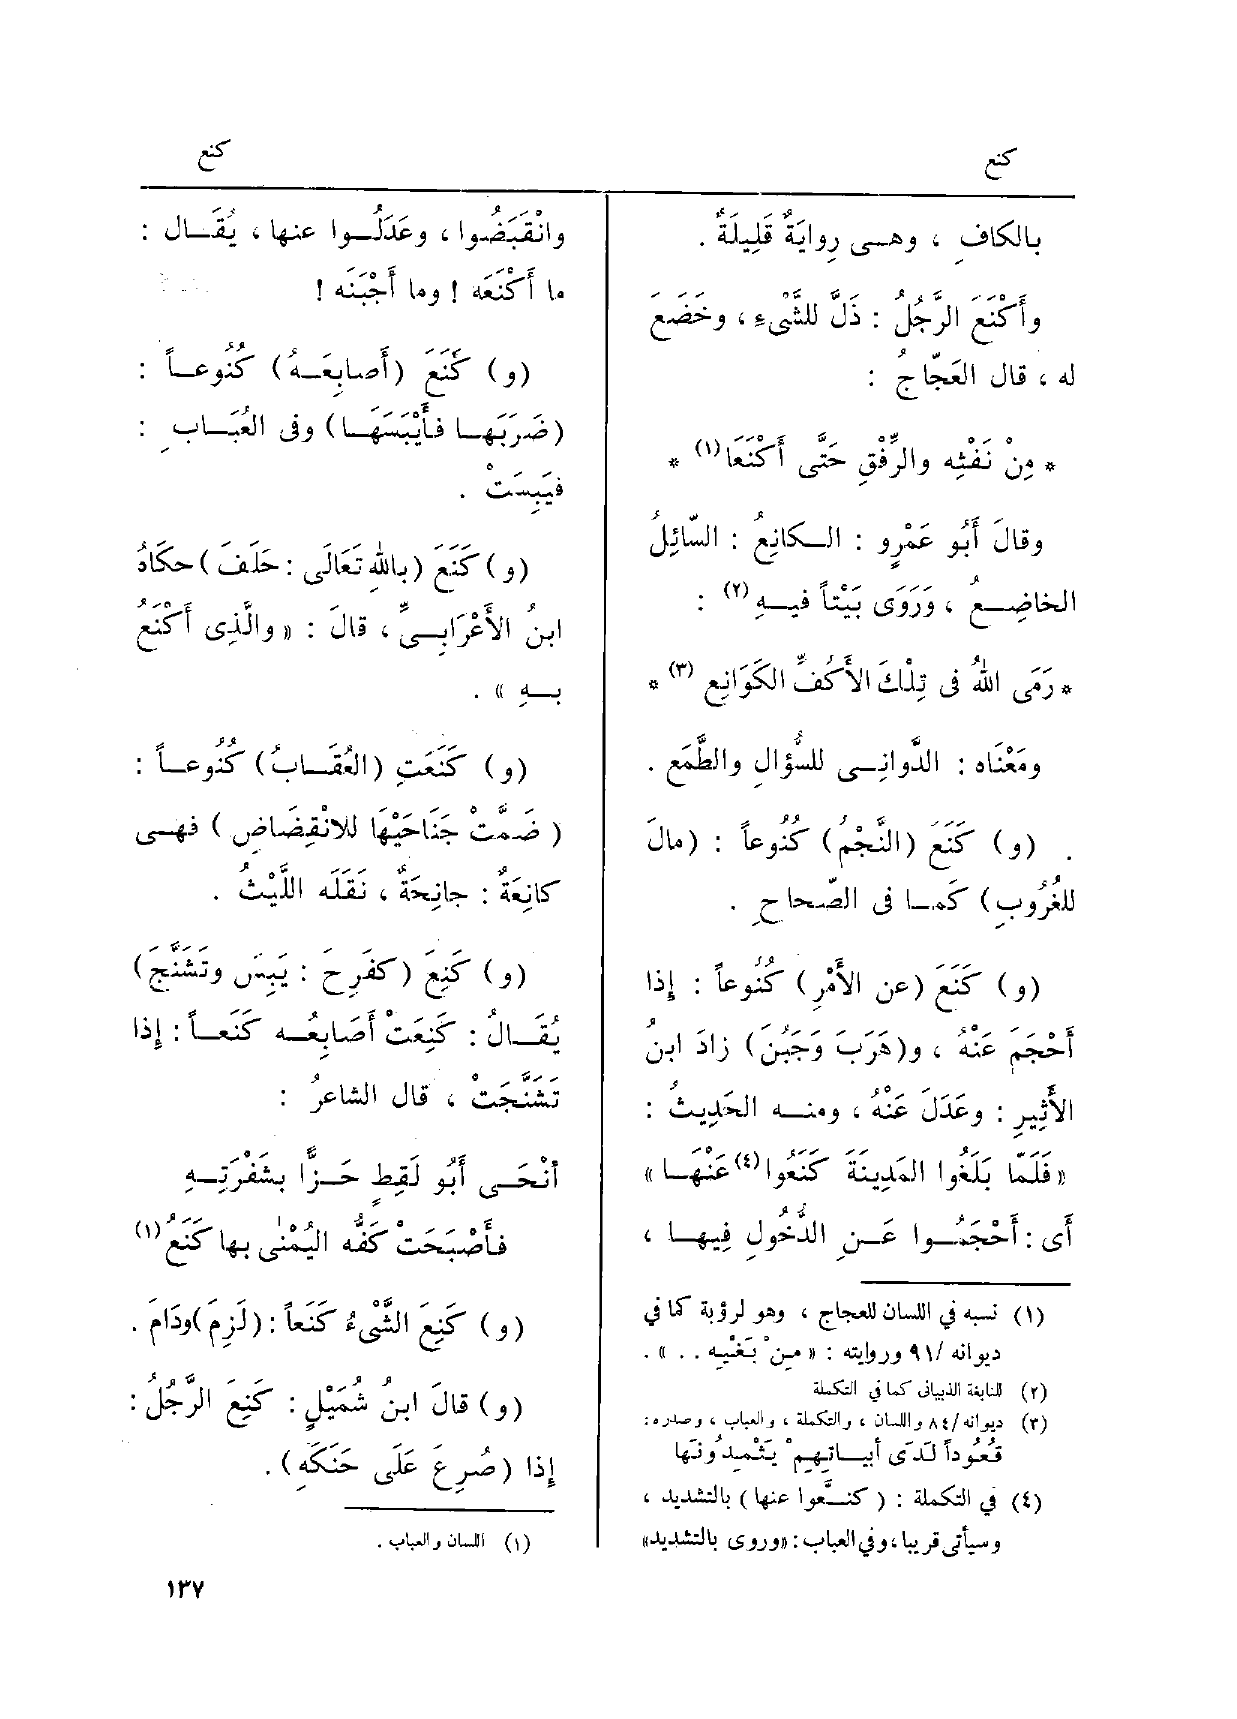 كنع
كنع
بالكافِ ، وهــى رِوايَةٌ قَلِيلَةٌ .
وأَكْنَعَ الرَّجُلُ : ذَلَّ للشَّىْءِ ، وخَضَعَ
له ، قال العَجّاجُ :
* مِنْ نَفْثِه والرِّفْقِ حَتَّى أَكْنَعَا (١) *
وقالَ أَبُو عَمْرٍو : الــكانِعُ : السّائِلُ
الخاضِــعُ ، وَرَوَى بَيْتاً فيــهِ (٢) :
* رَمَى اللهُ فى تِلْكَ الأَكُفِّ الكَوَانِعِ (٣) *
ومَعْنَاه : الدَّوانِــى للسُّؤالِ والطَّمَعِ .
. (و) كَنَعَ (النَّجْمُ) كُنُوعاً : (مالَ
للغُرُوبِ) كَمــا فى الصّحاحِ .
(و) كَنَعَ (عن الأَمْرِ) كُنُوعاً : إِذا
أَحْجَمَ عَنْهُ ، و(هَرَبَ وَجَبُنَ) زادَ ابنُ
الأَثِيرِ : وعَدَلَ عَنْهُ ، ومنــه الحَدِيثُ :
«فَلَمّا بَلَغُوا المَدِينَةَ كَنَعُوا (٤) عَنْهَــا »
أَى : أَحْجَمُــوا عَــنِ الدُّخُولِ فِيهــا ،
(١) نسبه في اللسان للعجاج ، وهو لرؤبة كما في
ديوانه /٩١ وروايته : « مِنْ بَغْيِه . . » .
(٢) للنابغة الذبيانى كما في التكملة
(٣) ديوانه/٨٤ واللسان ، والتكملة ، والعباب ، وصدره:
قُعُوداً لَدَى أبياتِهِمْ يَثْمِدُونَها
(٤) في التكملة : ( كنَّعوا عنها ) بالتشديد ،
وسيأتى قريبا ، وفي العباب : «وروى بالتشديد»
وانْقَبَضُوا ، وعَدَلُــوا عنها ، يُقَــال :
ما أَكْنَعَه ! وما أَجْبَنَه !
(و) كَنَعَ (أَصابِعَــهُ) كُنُوعــاً :
(ضَرَبَهــا فأَيْبَسَهَــا) وفى العُبَــابِ :
فيَبِسَتْ .
(و) كَنَعَ (باللهِ تَعَالَى : حَلَفَ) حكاهُ
ابنُ الأَعْرَابِــىِّ ، قالَ : « والَّذِى أَكْنَعُ
بــهِ » .
(و) كَنَعَتِ (العُقَــابُ) كُنُوعــاً :
( ضَمَّتْ جَنَاحَيْهَا للانْقِضَاضِ ) فهــى
كانِعَةٌ : جانِحَةٌ ، نَقَلَه اللَّيْثُ .
(و) كَنِعَ (كفَرِحَ : يَبِسَ وتَشَنَّجَ)
يُقَــالُ : كَنِعَتْ أَصَابِعُــه كَنَعــاً : إِذا
تَشَنَّجَتْ ، قال الشاعرُ :
أَنْحَــى أَبُو لَقِطٍ حَــزًّا بشَفْرَتِــهِ
فأَصْبَحَتْ كَفُّه اليُمْنٰى بها كَنَعُ (١)
(و) كَنِعَ الشَّىْءُ كَنَعاً : (لَزِمَ) ودَامَ .
(و) قالَ ابنُ شُمَيْلٍ : كَنِعَ الرَّجُلُ :
إِذا (صُرِعَ عَلَى حَنَكَهِ) .
(١) اللسان والعباب .
١٣٧